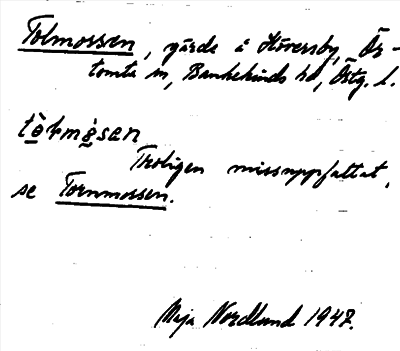 Tolmossen, gärde å Höversby, Ör-
tomta sn, Bankekinds hd, Östg. l.
tò̱ɫmò̱san
Troligen missuppfattat,
se Tornmossen.
Maja Nordlund 1947.